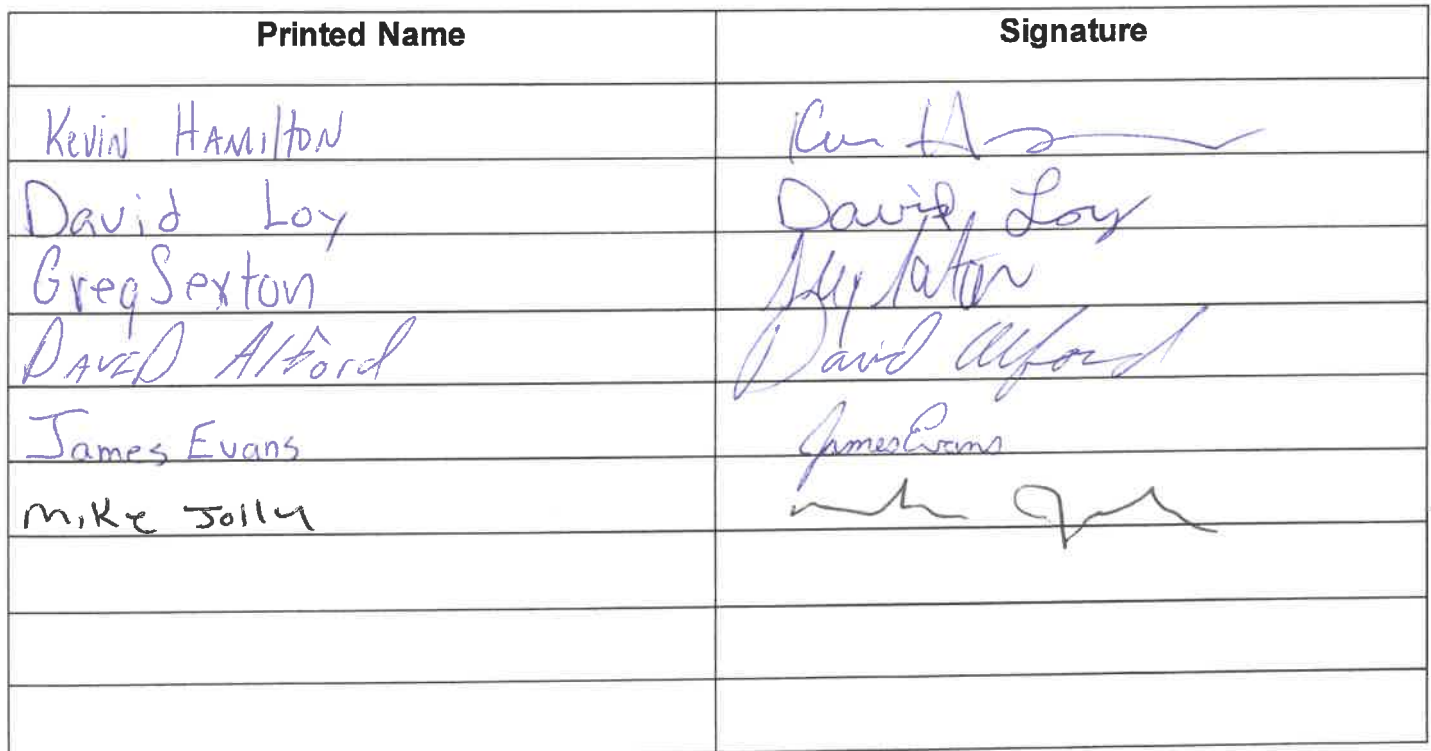 Printed Name Signature
Kevin Hamilton Kevin H
David Loy David Loy
Greg Sexton Greg Sexton
David Alford David Alford
James Evans James Evans
Mike Jolly